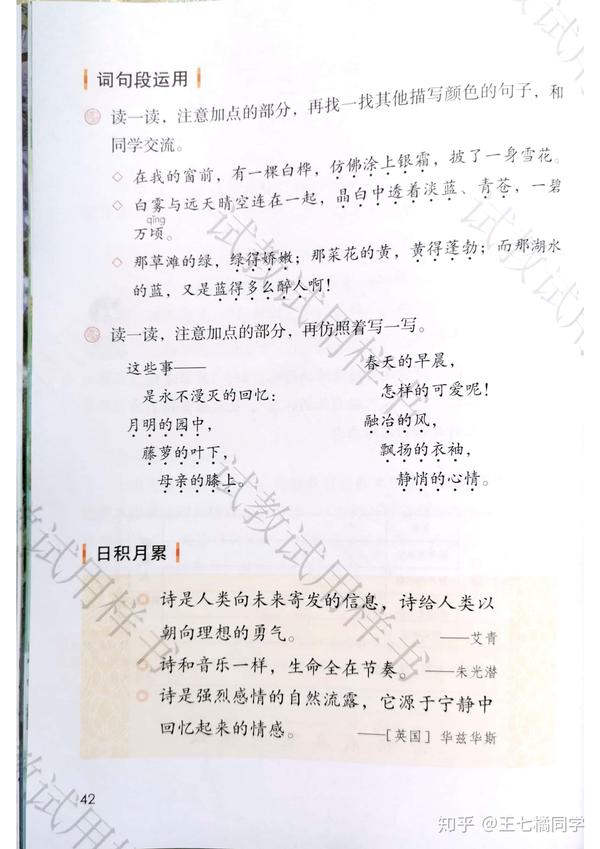 词句段运用
读一读，注意加点的部分，再找一找其他描写颜色的句子，和
同学交流。
◇ 在我的窗前，有一棵白桦，仿佛涂上银霜，披了一身雪花。
◇ 白雾与远天晴空连在一起，晶白中透着淡蓝、青苍，一碧
qǐng
万顷。
◇ 那草滩的绿，绿得娇嫩；那菜花的黄，黄得蓬勃；而那湖水
的蓝，又是蓝得多么醉人啊！
读一读，注意加点的部分，再仿照着写一写。
这些事——
是永不漫灭的回忆：
月明的园中，
藤萝的叶下，
母亲的膝上。
春天的早晨，
怎样的可爱呢！
融冶的风，
飘扬的衣袖，
静悄的心情。
日积月累
诗是人类向未来寄发的信息，诗给人类以
朝向理想的勇气。 ——艾青
诗和音乐一样，生命全在节奏。 ——朱光潜
诗是强烈感情的自然流露，它源于宁静中
回忆起来的情感。 ——[英国] 华兹华斯
42
试教试用样书
知乎 @王七橘同学